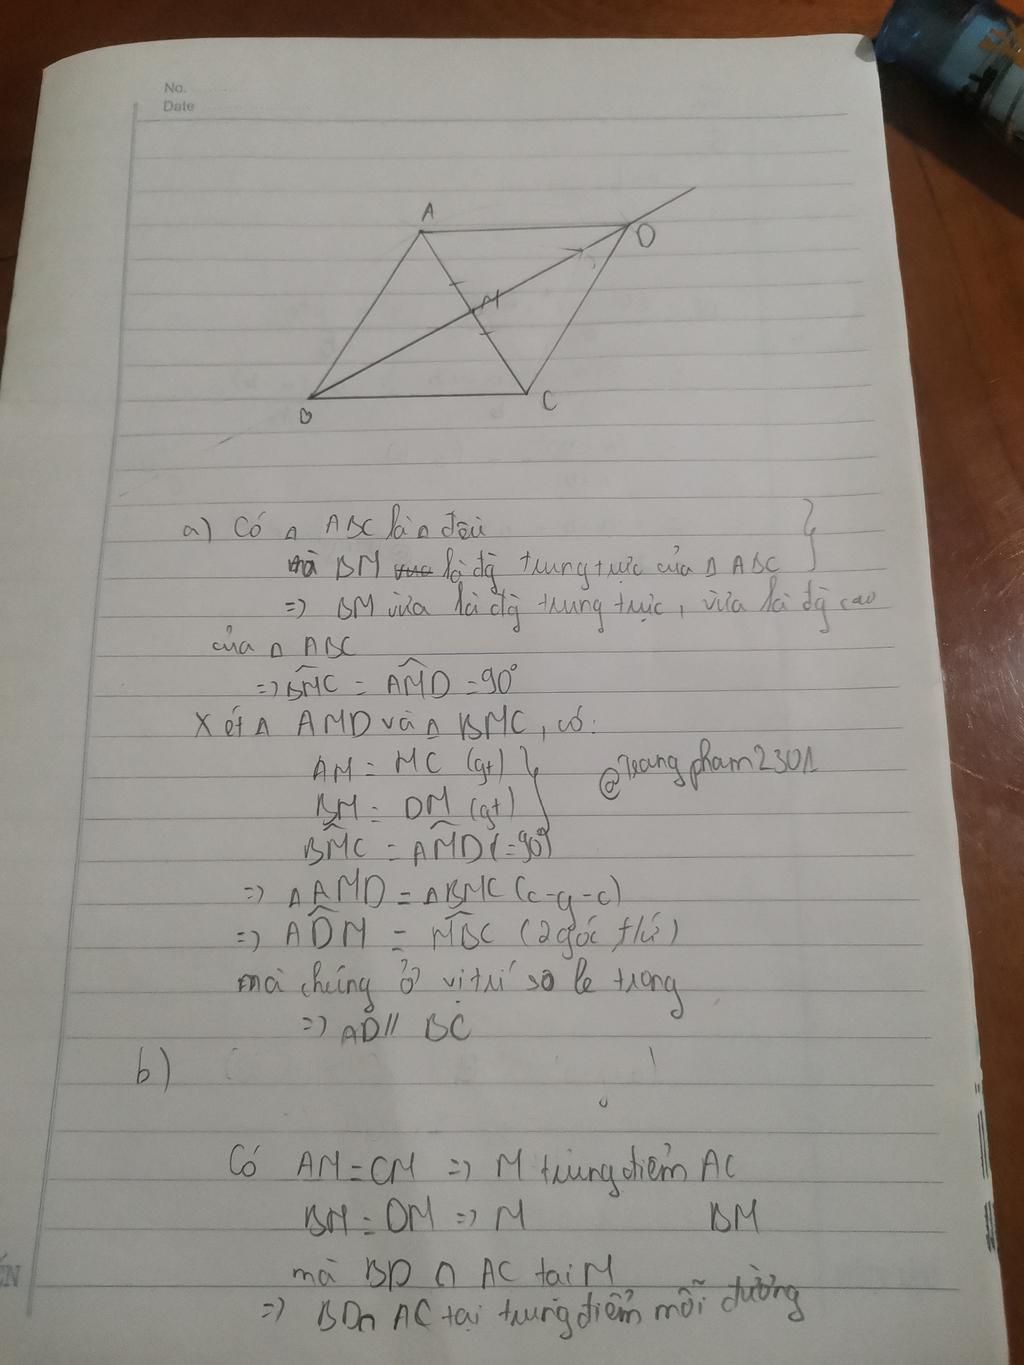 No.
Date
A
D
M
B
C
a) Có Δ ABC là Δ đều
mà BM là đg trung trực của Δ ABC
=> BM vừa là đg trung trực, vừa là đg cao
của Δ ABC
=> BMC = AMD = 90°
Xét Δ AMD và Δ BMC, có:
AM = MC (gt)
@Trangpham2301
BM = DM (gt)
BMC = AMD (=90°)
=> Δ AMD = Δ BMC (c-g-c)
=> ADM = MBC (2 góc t/ứ)
mà chúng ở vị trí so le trong
=> AD // BC
b)
Có AM = CM => M trung điểm AC
BM = DM => M BM
mà BD ∩ AC tại M
=> BD ∩ AC tại trung điểm mỗi đường